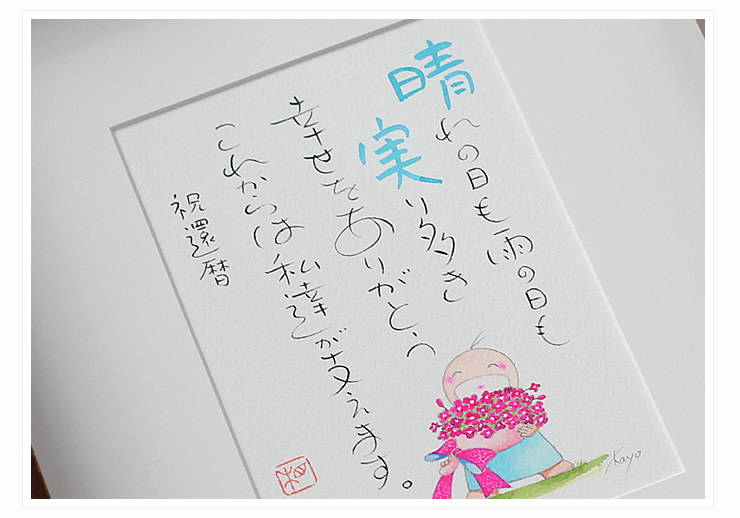 晴れの日も雨の日も
実り多き
幸せをありがとう
これからは私達が支えます。
祝還暦
Kayo